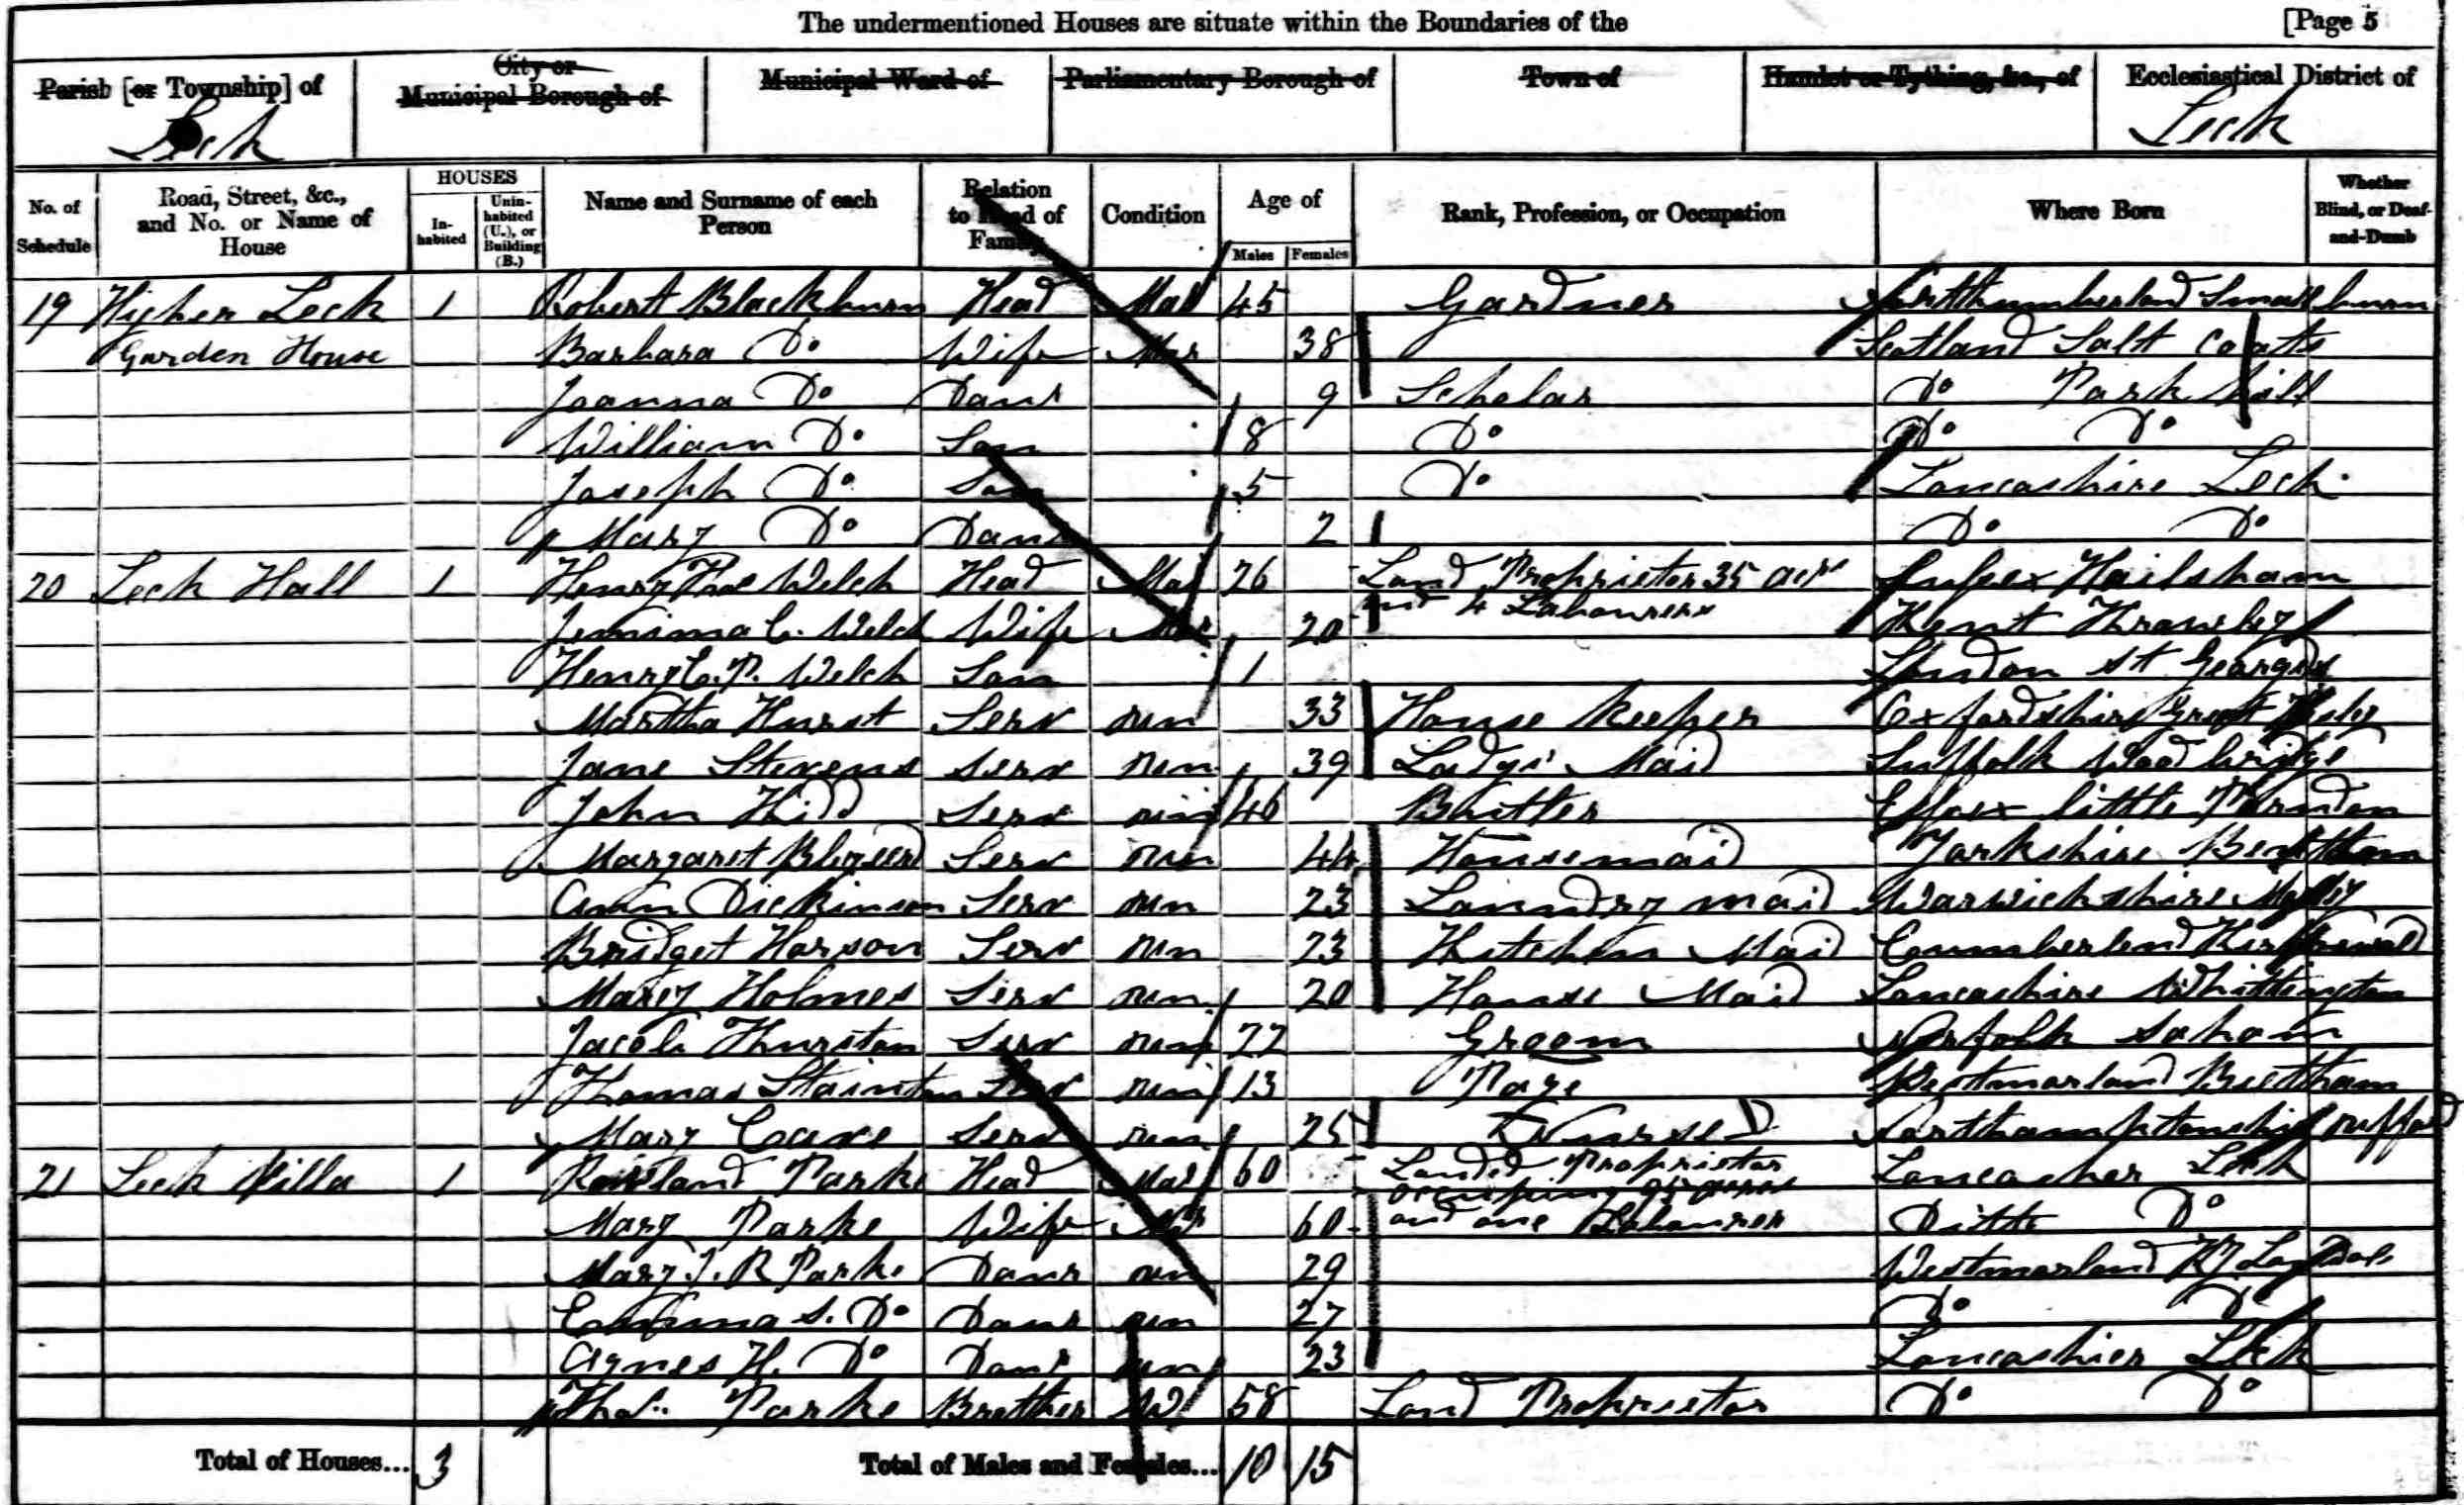 The undermentioned Houses are situate within the Boundaries of the [Page 5
Parish [or Township] of
City or Municipal Borough of
Municipal Ward of
Parliamentary Borough of
Town of
Hamlet or Tything, &c., of
Ecclesiastical District of
Leck Leck
No. of Schedule
Road, Street, &c., and No. or Name of House
HOUSES
In-habited
Unin-habited (U.), or Building (B.)
Name and Surname of each Person
Relation to Head of Family
Condition
Age of
Males Females
Rank, Profession, or Occupation
Where Born
Whether Blind, or Deaf-and-Dumb
19 Higher Leck 1 Robert Blackburn Head Mar 45 Gardner Northumberland Smallburn
Garden House Barbara Do Wife Mar 38 Scotland Salt Coats
Joanna Do Daur 9 Scholar Do Park hill
William Do Son 8 Do Do Do
Joseph Do Son 5 Do Lancashire Leck
Mary Do Daur 2 Do Do
20 Leck Hall 1 Henry Thos Welch Head Mar 26 Land Proprietor 35 acre Sussex Hailsham
and 4 Labourers
Jemima C. Welch Wife Mar 20 Kent
Henry E. P. Welch Son 1 London St Georges
Martha Hurst Serv un 33 House Keeper Oxfordshire Great
Jane Stevens Serv un 39 Ladys' Maid Suffolk Woodbridge
John Kidd Serv un 46 Buttler Essex little
Margaret Serv un 44 Housemaid Yorkshire Bentham
Ann Dickinson Serv un 23 Laundry maid Warwickshire
Bridget Harson Serv un 23 Kitchen Maid Coumberland
Mary Holmes Serv un 20 House Maid Lancashire Whittington
Jacob Thurston Serv un 22 Groom Norfolk Saham
Thomas Stainton Serv un 13 Page Westmorland Beetham
Mary Cave Serv un 25 Nurse D Northamptonshire
21 Leck Villa 1 Rowland Parke Head Mar 60 Landed Proprietor Lancasher Leck
occupying acres
Mary Parke Wife Mar 60 and one Labourer Ditto Do
Mary J. R Parke Daur un 29 Westmorland Ky Lonsdale
Emma S. Do Daur un 27 Do Do
Agnes H. Do Daur un 23 Lancashier Leck
Thos. Parke Brother W 58 Land Proprietor Do Do
Total of Houses... 3 Total of Males and Females... 10 15